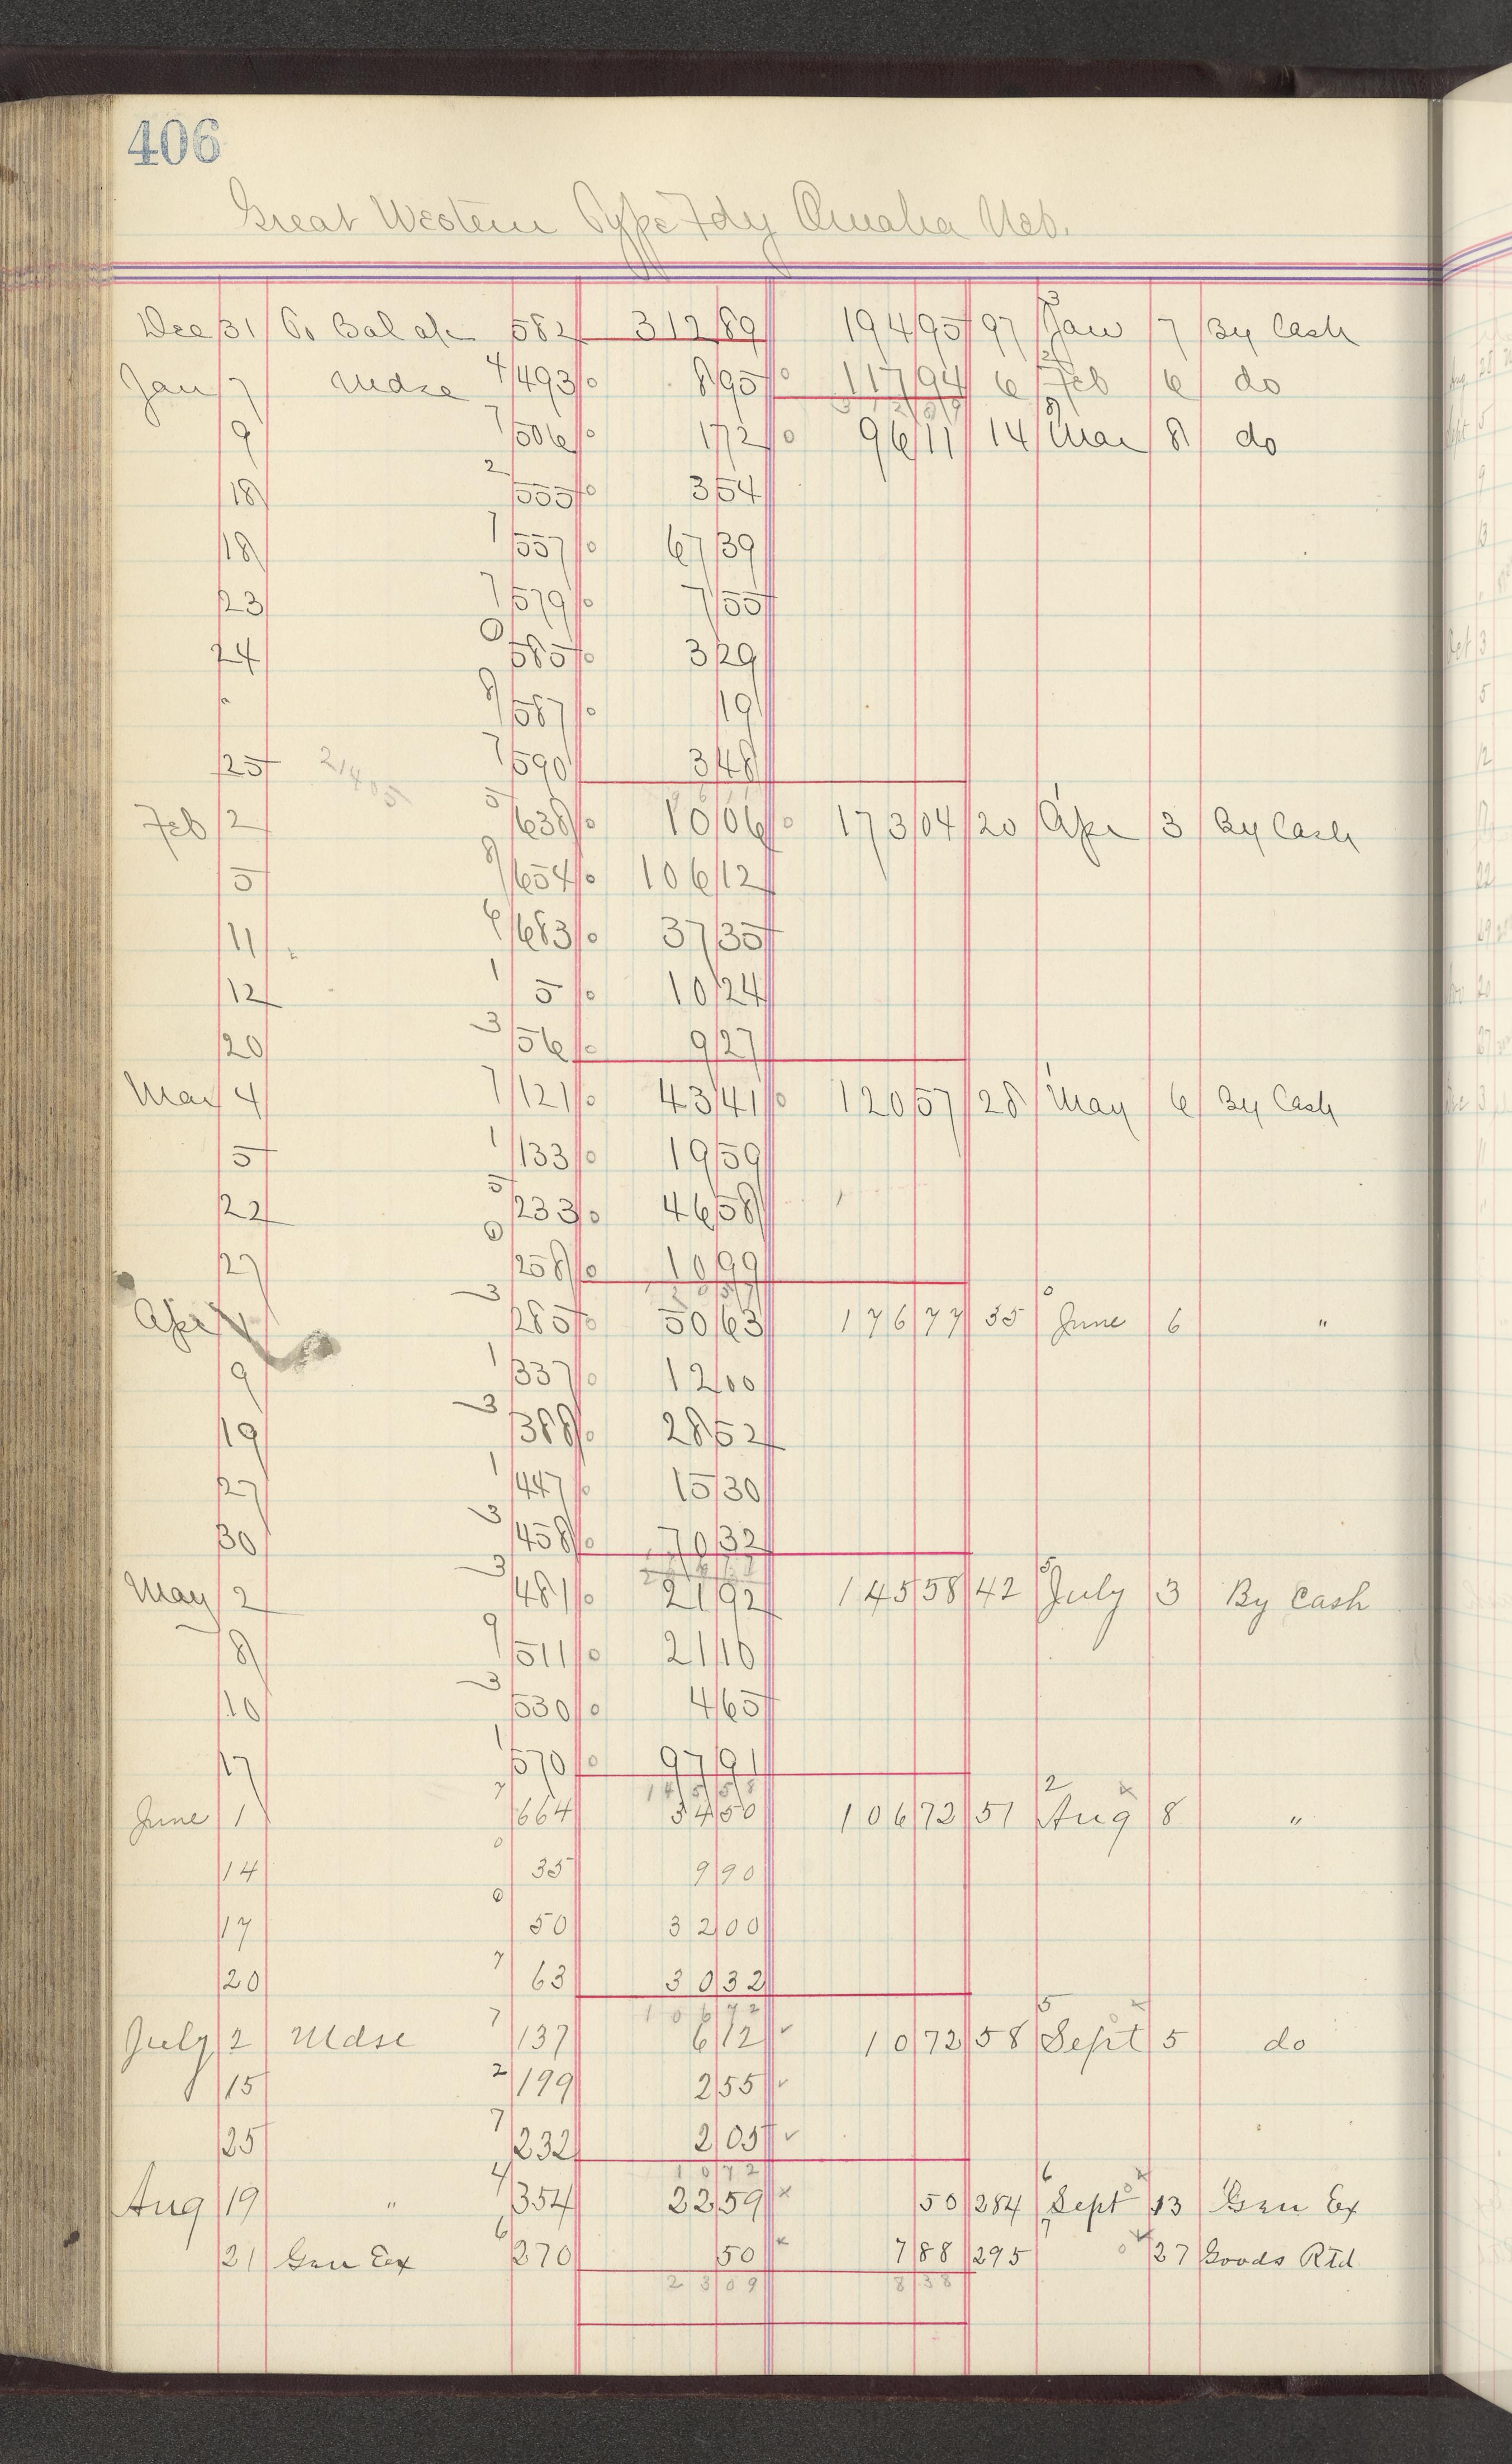 406
Great Western Type Fdy Omaha Neb.
Dec 31 To Bal a/c 582 312 89 194 95 97 3 Jan 7 By Cash
Jan 7 Mdse 4/493 8 95 117 94 6 Feb 6 do
9 7/506 1 72 96 11 14 8 Mar 8 do
18 2/555 3 54
18 7/557 67 39
23 7/579 7 55
24 0/585 3 29
" 8/587 19
25 7/590 3 48
96 11
Feb 2 5/638 10 06 173 04 20 1 Apr 3 By Cash
5 8/654 106 12
11 6/683 37 35
12 1/5 10 24
20 3/56 9 27
Mar 4 7/121 43 41 120 57 28 1 May 6 By Cash
5 1/133 19 59
22 5/233 46 58
27 0/258 10 99
120 57
Apr 1 3/285 50 63 176 77 35 0 June 6 "
9 1/337 12 00
19 3/388 28 52
27 1/447 15 30
30 3/458 70 32
May 2 3/481 21 92 145 58 42 5 July 3 By Cash
8 9/511 21 10
10 3/530 4 65
17 1/570 97 91
145 58
June 1 7/664 34 50 106 72 51 2 Aug 8 "
14 0/35 9 90
17 0/50 32 00
20 7/63 30 32
106 72
July 2 Mdse 7/137 6 12 10 72 58 5 Sept 5 do
15 2/199 2 55
25 7/232 2 05
10 72
Aug 19 " 4/354 22 59 50 284 6 Sept 13 Gen Ex
21 Gen Ex 6/270 50 7 88 295 7 27 Goods Rtd
23 09 8 38